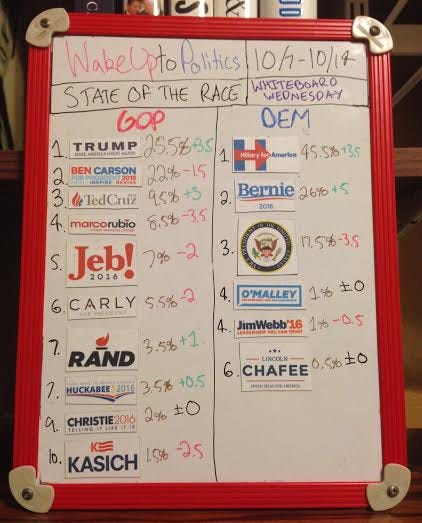 WakeUp to Politics 10/7-10/14
STATE OF THE RACE WHITEBOARD WEDNESDAY
GOP
1. TRUMP 25.5% +3.5
MAKE AMERICA GREAT AGAIN!
2. BEN CARSON 22% -1.5
FOR PRESIDENT 2016
HEAL INSPIRE REVIVE
3. TedCruz 9.5% +3
4. marcorubio 8.5% -3.5
5. Jeb! 7% -2
2016
6. CARLY 5.5% -2
FOR PRESIDENT
7. RAND 3.5% +1
7. HUCKABEE 2016 3.5% +0.5
9. CHRISTIE 2016 2% ±0
TELLING IT LIKE IT IS
10. KASICH 1.5% -2.5
DEM
1. Hillary for America 45.5% +3.5
2. Bernie 26% +5
2016
3. 17.5% -3.5
4. O'MALLEY 1% ±0
4. JimWebb'16 1% -0.5
LEADERSHIP YOU CAN TRUST
6. LINCOLN 0.5% ±0
CHAFEE
FRESH IDEAS FOR AMERICA